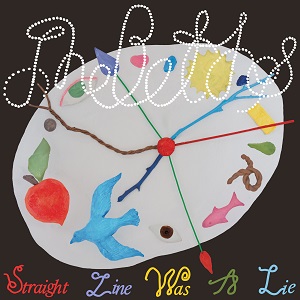 The Beths
Straight Line Was A Lie